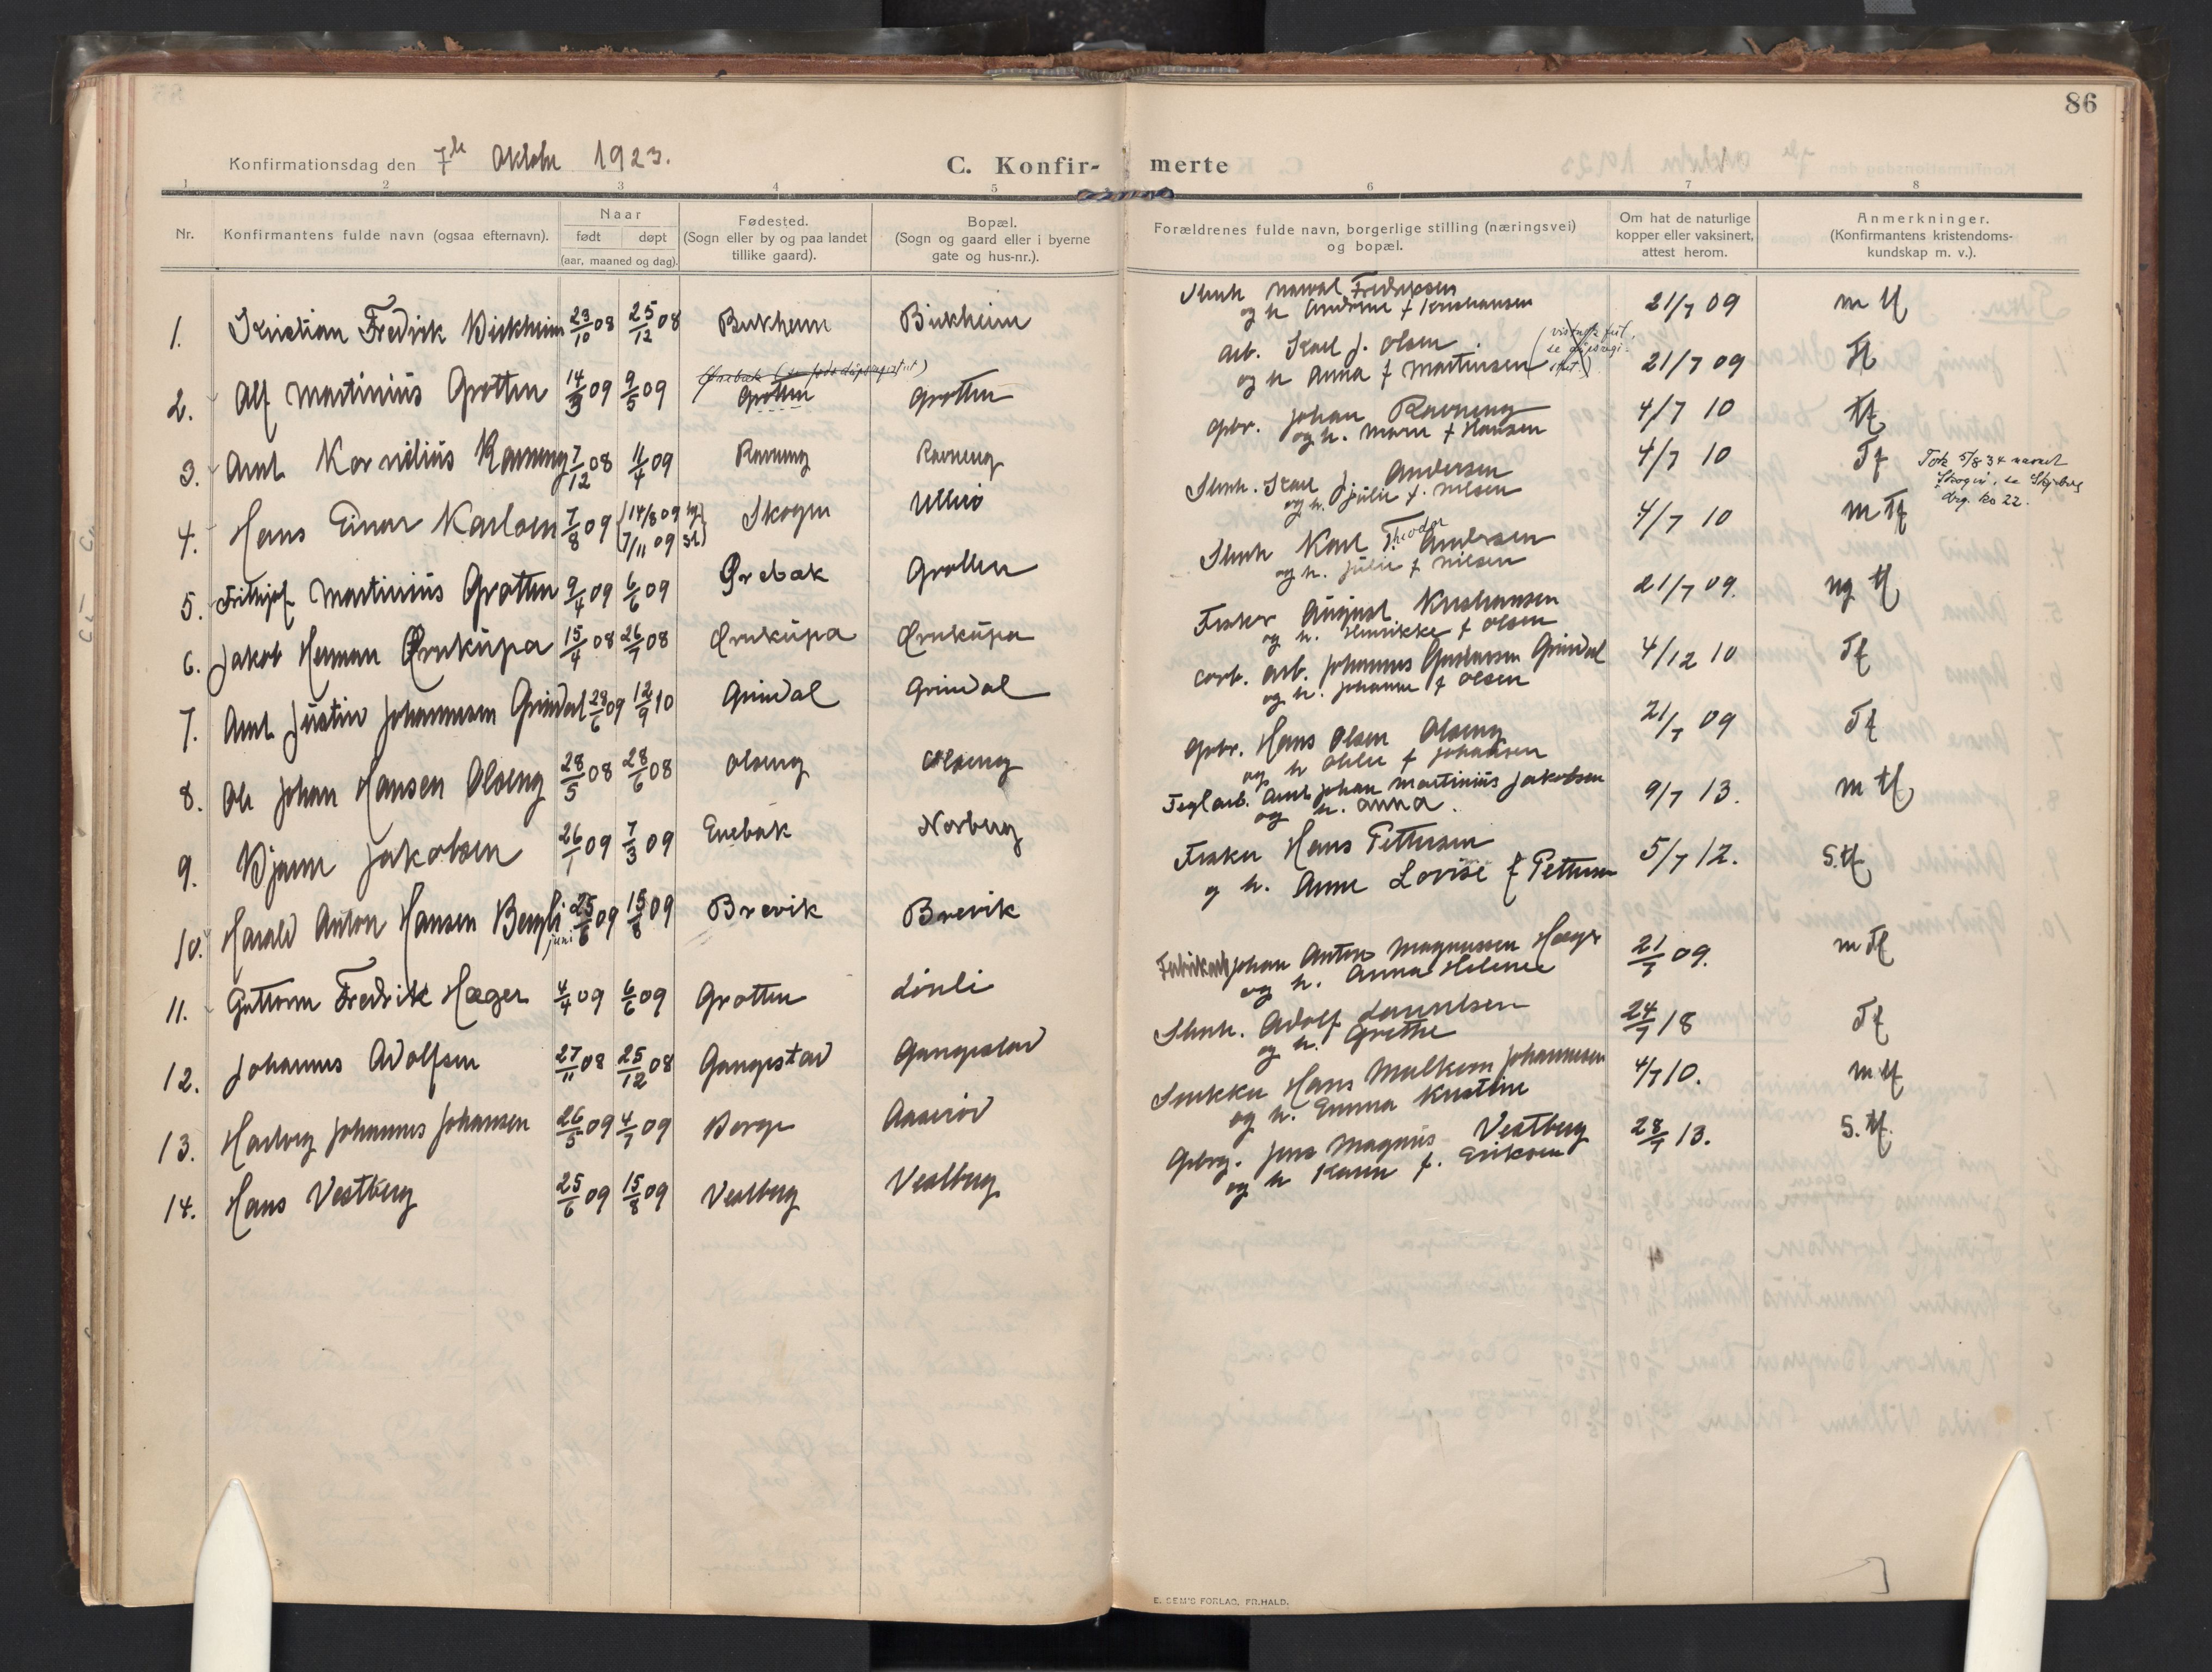 86
Konfirmationsdag den 7de Oktober 1923.
C. Konfir- merte
1 2 3 4 5 6 7 8
Nr.
Konfirmantens fulde navn (ogsaa efternavn).
Naar
født døpt
(aar, maaned og dag).
Fødested.
(Sogn eller by og paa landet
tillike gaard).
Bopæl.
(Sogn og gaard eller i byerne
gate og hus-nr.).
Forældrenes fulde navn, borgerlige stilling (næringsvei)
og bopæl.
Om hat de naturlige
kopper eller vaksinert,
attest herom.
Anmerkninger.
(Konfirmantens kristendoms-
kundskap m. v.).
1. Kristian Fredrik Birkheim 23/10 08 25/12 08 Birkheim Birkheim
Fredriksen
og h. Andrine f Kristiansen
21/7 09 m tf
2. Alf Martinius Grotten 14/3 09 9/5 09 Grotten Grotten
Arb. Karl J. Olsen
og h Anna f Martinsen
21/7 09 tf
3. Arnt Kornelius Ravneng 7/12 08 11/4 09 Ravneng Ravneng
Gbr. Johan Ravneng
og h. Marie f Hansen
4/7 10 tf
4. Hans Einar Karlsen 7/8 09 14/8 09 7/11 09 Skogen
Stenh. Karl J Andersen
og h. Julie f. Nilsen
4/7 10 Tf
Tok 5/8 34 navnet
Skogen, se Skjeberg
5. Frithjof Martinius Grotten 9/4 09 6/6 09 Ørebæk Grotten
Stenh Karl Theodor Andersen
og h. Julie f Nilsen
4/7 10 m tf
6. Jakob Herman Ørnkupa 15/4 08 26/7 08 Ørnkupa Ørnkupa
Fisker August Kristiansen
og h. Henrikke f Olsen
21/7 09. ng tf
7. Arnt Justin Johannesen Grindal 23/6 09 12/9 10 Grindal Grindal
arb. Johannes Gustavsen Grindal
og h. Johanne f Olsen
4/12 10 Tf
8. Ole Johan Hansen Olseng 28/5 08 28/6 08 Olseng Olseng
Gbr. Hans Olsen Olseng
og h f Johansen
21/7 09 Tf
9. Bjarne Jakobsen 26/1 09 7/3 09 Enebak Norberg
Teglarb. Arnt Johan Martinius Jakobsen
og h. Anna.
9/7 13. m tf
10. Harald Anton Hansen Bergli 25/6 09 15/8 09 Brevik Brevik
juni
Fisker Hans Pettersen
og h. Anne Lovise f Pettersen
5/7 12. S. tf
11. Guttorm Fredrik Hæger 4/4 09 6/6 09 Grotten Lönli
Fabrikarb Johan Anton Magnussen Hæger
og h. Anna Helene
21/7 09. m Tf
12. Johannes Adolfsen 27/11 08 25/12 08 Gangestad Gangestad
Stenh. Adolf Lauritsen
og h. Grethe
24/7 18 Tf
13. Hartvig Johannes Johansen 26/5 09 4/7 09 Borge Aaserød
Snekker Hans Malkom Johannesen
og h. Emma Kristine
4/7 10. m tf
14. Hans Vestberg 25/6 09 15/8 09 Vestberg Vestberg
Jens Magnus Vestberg
og h Karen f. Eriksen
28/7 13. S. tf.
E. SEM'S FORLAG, FR.HALD.